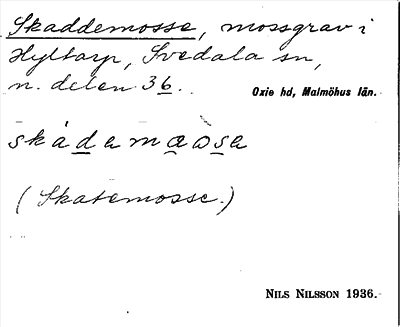 Skaddemosse, mossgrav i
Hyltarp, Svedala sn,
n. delen 36.
Oxie hd, Malmöhus län.
(Skatemosse.)
NILS NILSSON 1936.